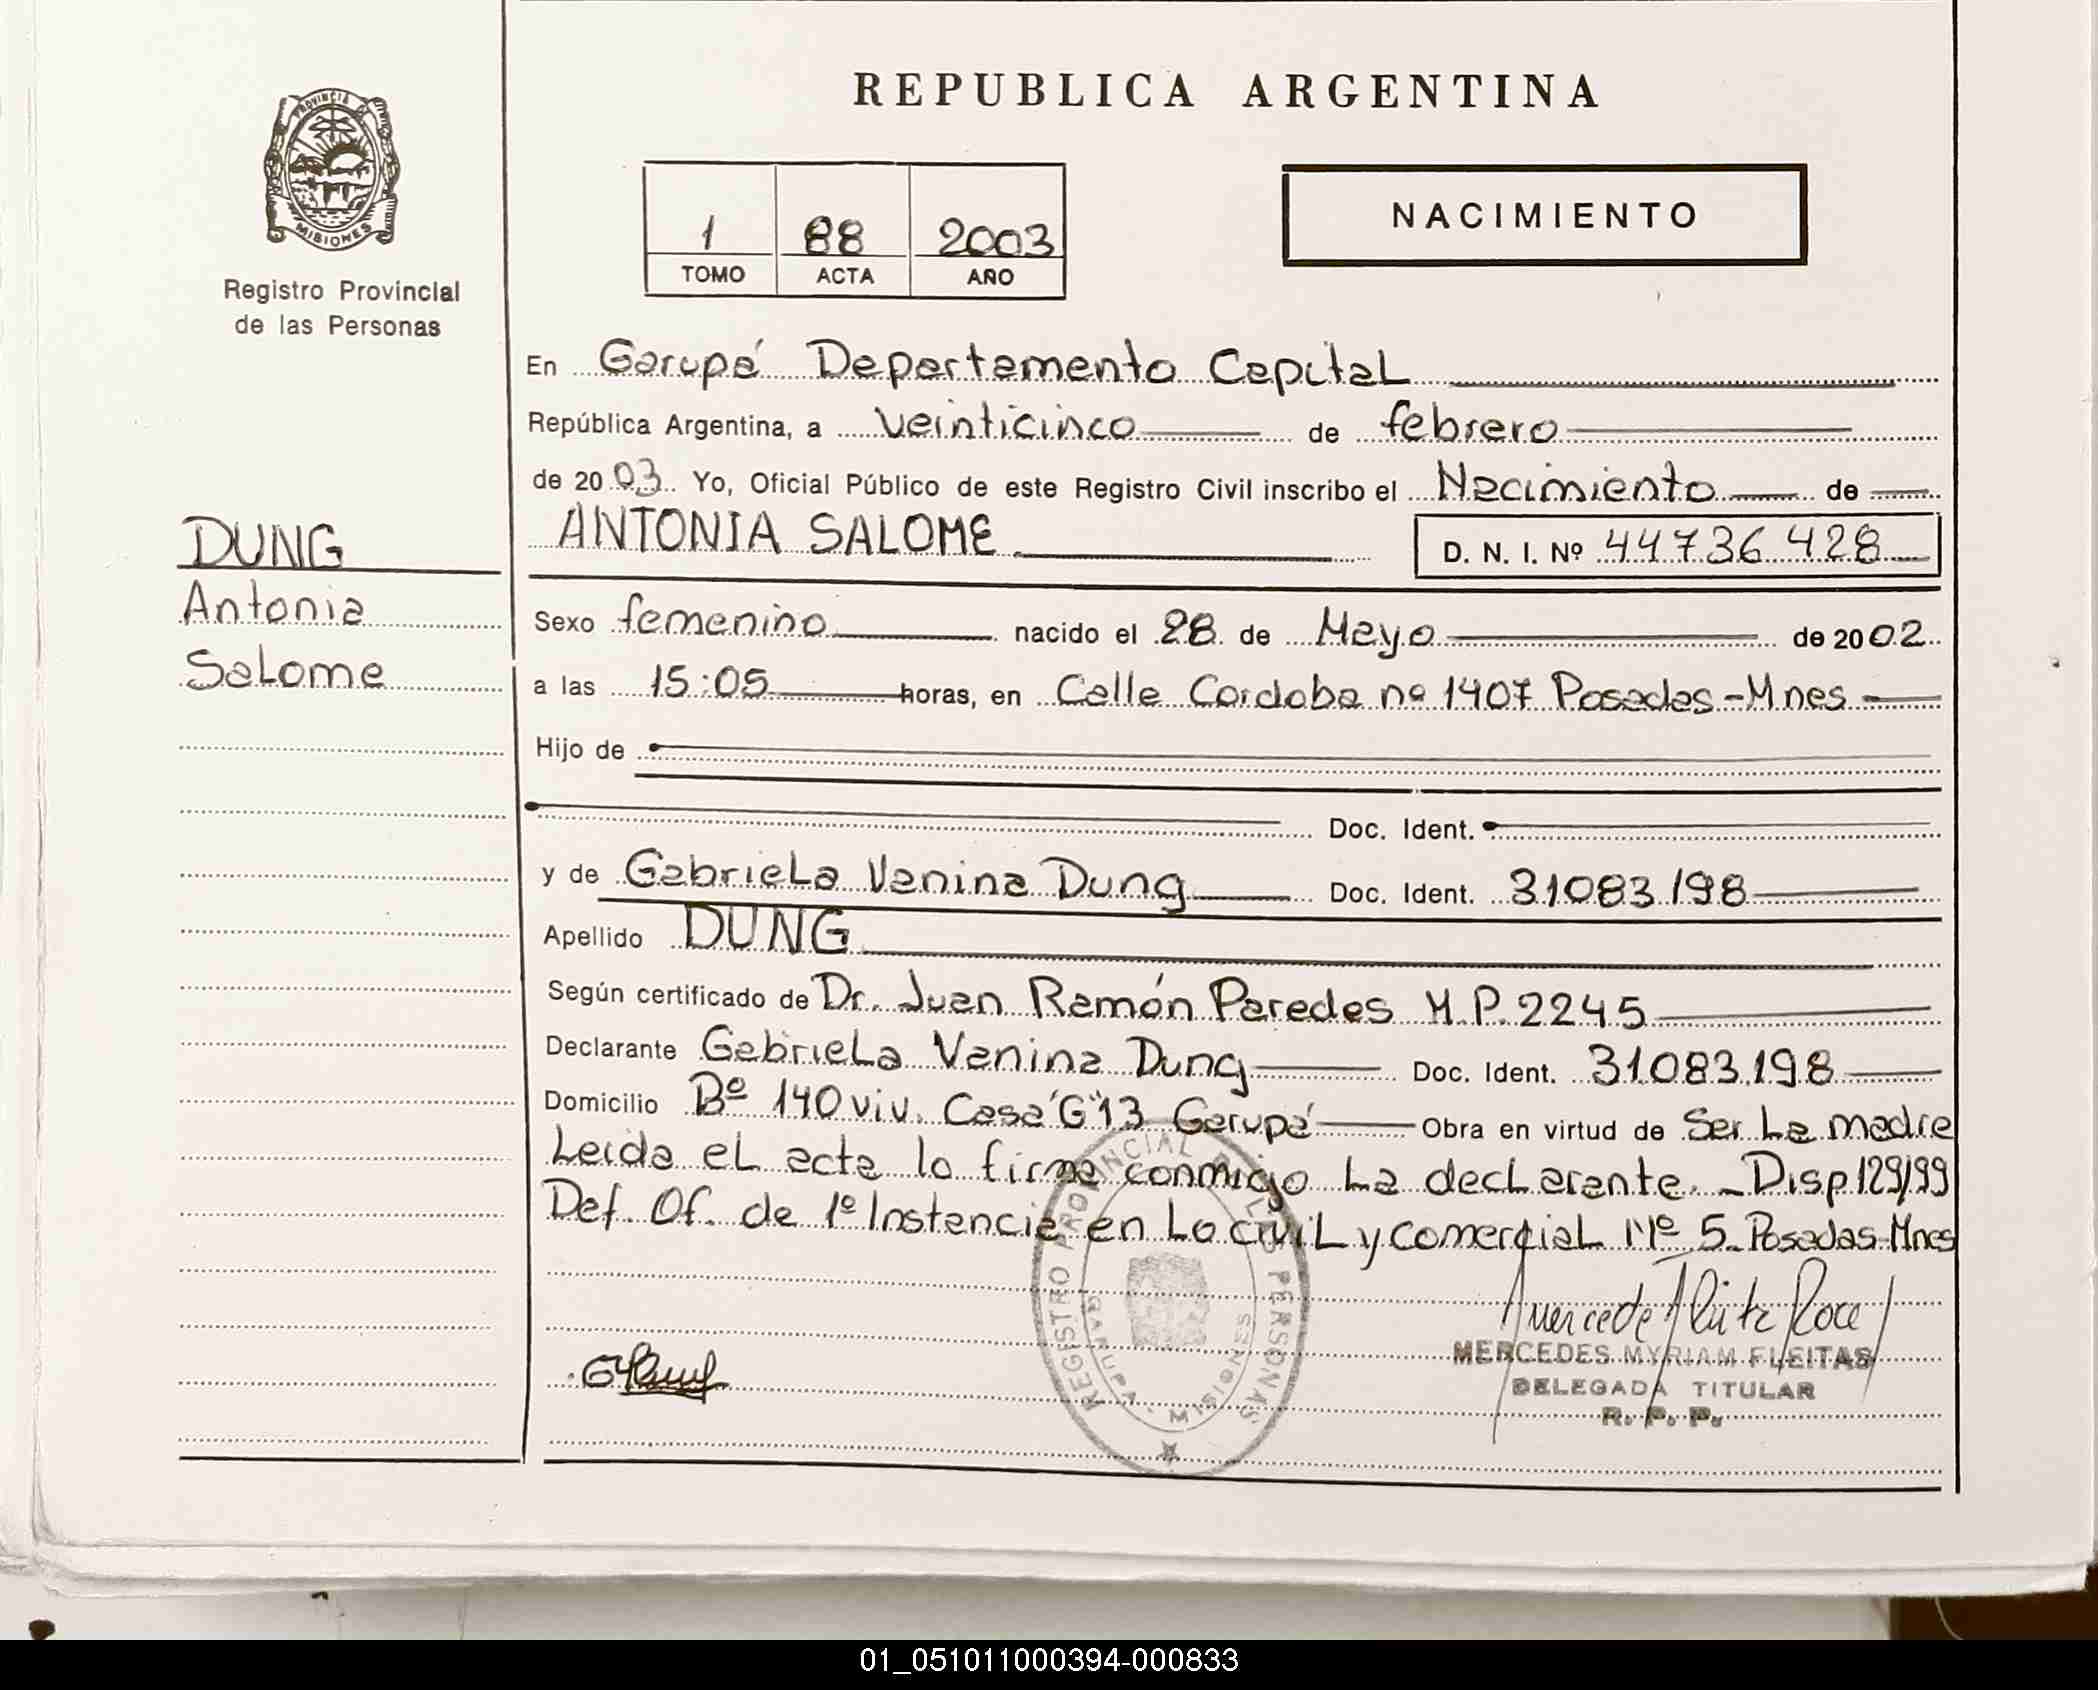 REPUBLICA ARGENTINA
PROVINCIA DE
MISIONES
Registro Provincial
de las Personas
1 88 2003
TOMO ACTA AÑO
NACIMIENTO
En Garupá Departamento Capital
República Argentina, a veinticinco de febrero
de 2003 Yo, Oficial Público de este Registro Civil inscribo el Nacimiento de
ANTONIA SALOME D. N. I. Nº 44736428
DUNG
Antonia
Salome
Sexo femenino nacido el 28 de Mayo de 2002
a las 15:05 horas, en Calle Cordoba nº 1407 Posadas-Mnes
Hijo de
Doc. Ident.
y de Gabriela Vanina Dung Doc. Ident. 31083198
Apellido DUNG
Según certificado de Dr. Juan Ramón Paredes M.P. 2245
Declarante Gabriela Vanina Dung Doc. Ident. 31.083.198
Domicilio Bº 140 viv. Casa "G" 13 Garupá Obra en virtud de Ser La madre
Leida el acta lo firma conmigo La declarante. - Disp 129/99
Def. Of. de 1º Instancia en Lo civil y comercial Nº 5 - Posadas-Mnes
REGISTRO PROVINCIAL DE LAS PERSONAS
GARUPA - MISIONES
MERCEDES MYRIAM FLEITAS
DELEGADA TITULAR
R. P. P.
01_051011000394-000833